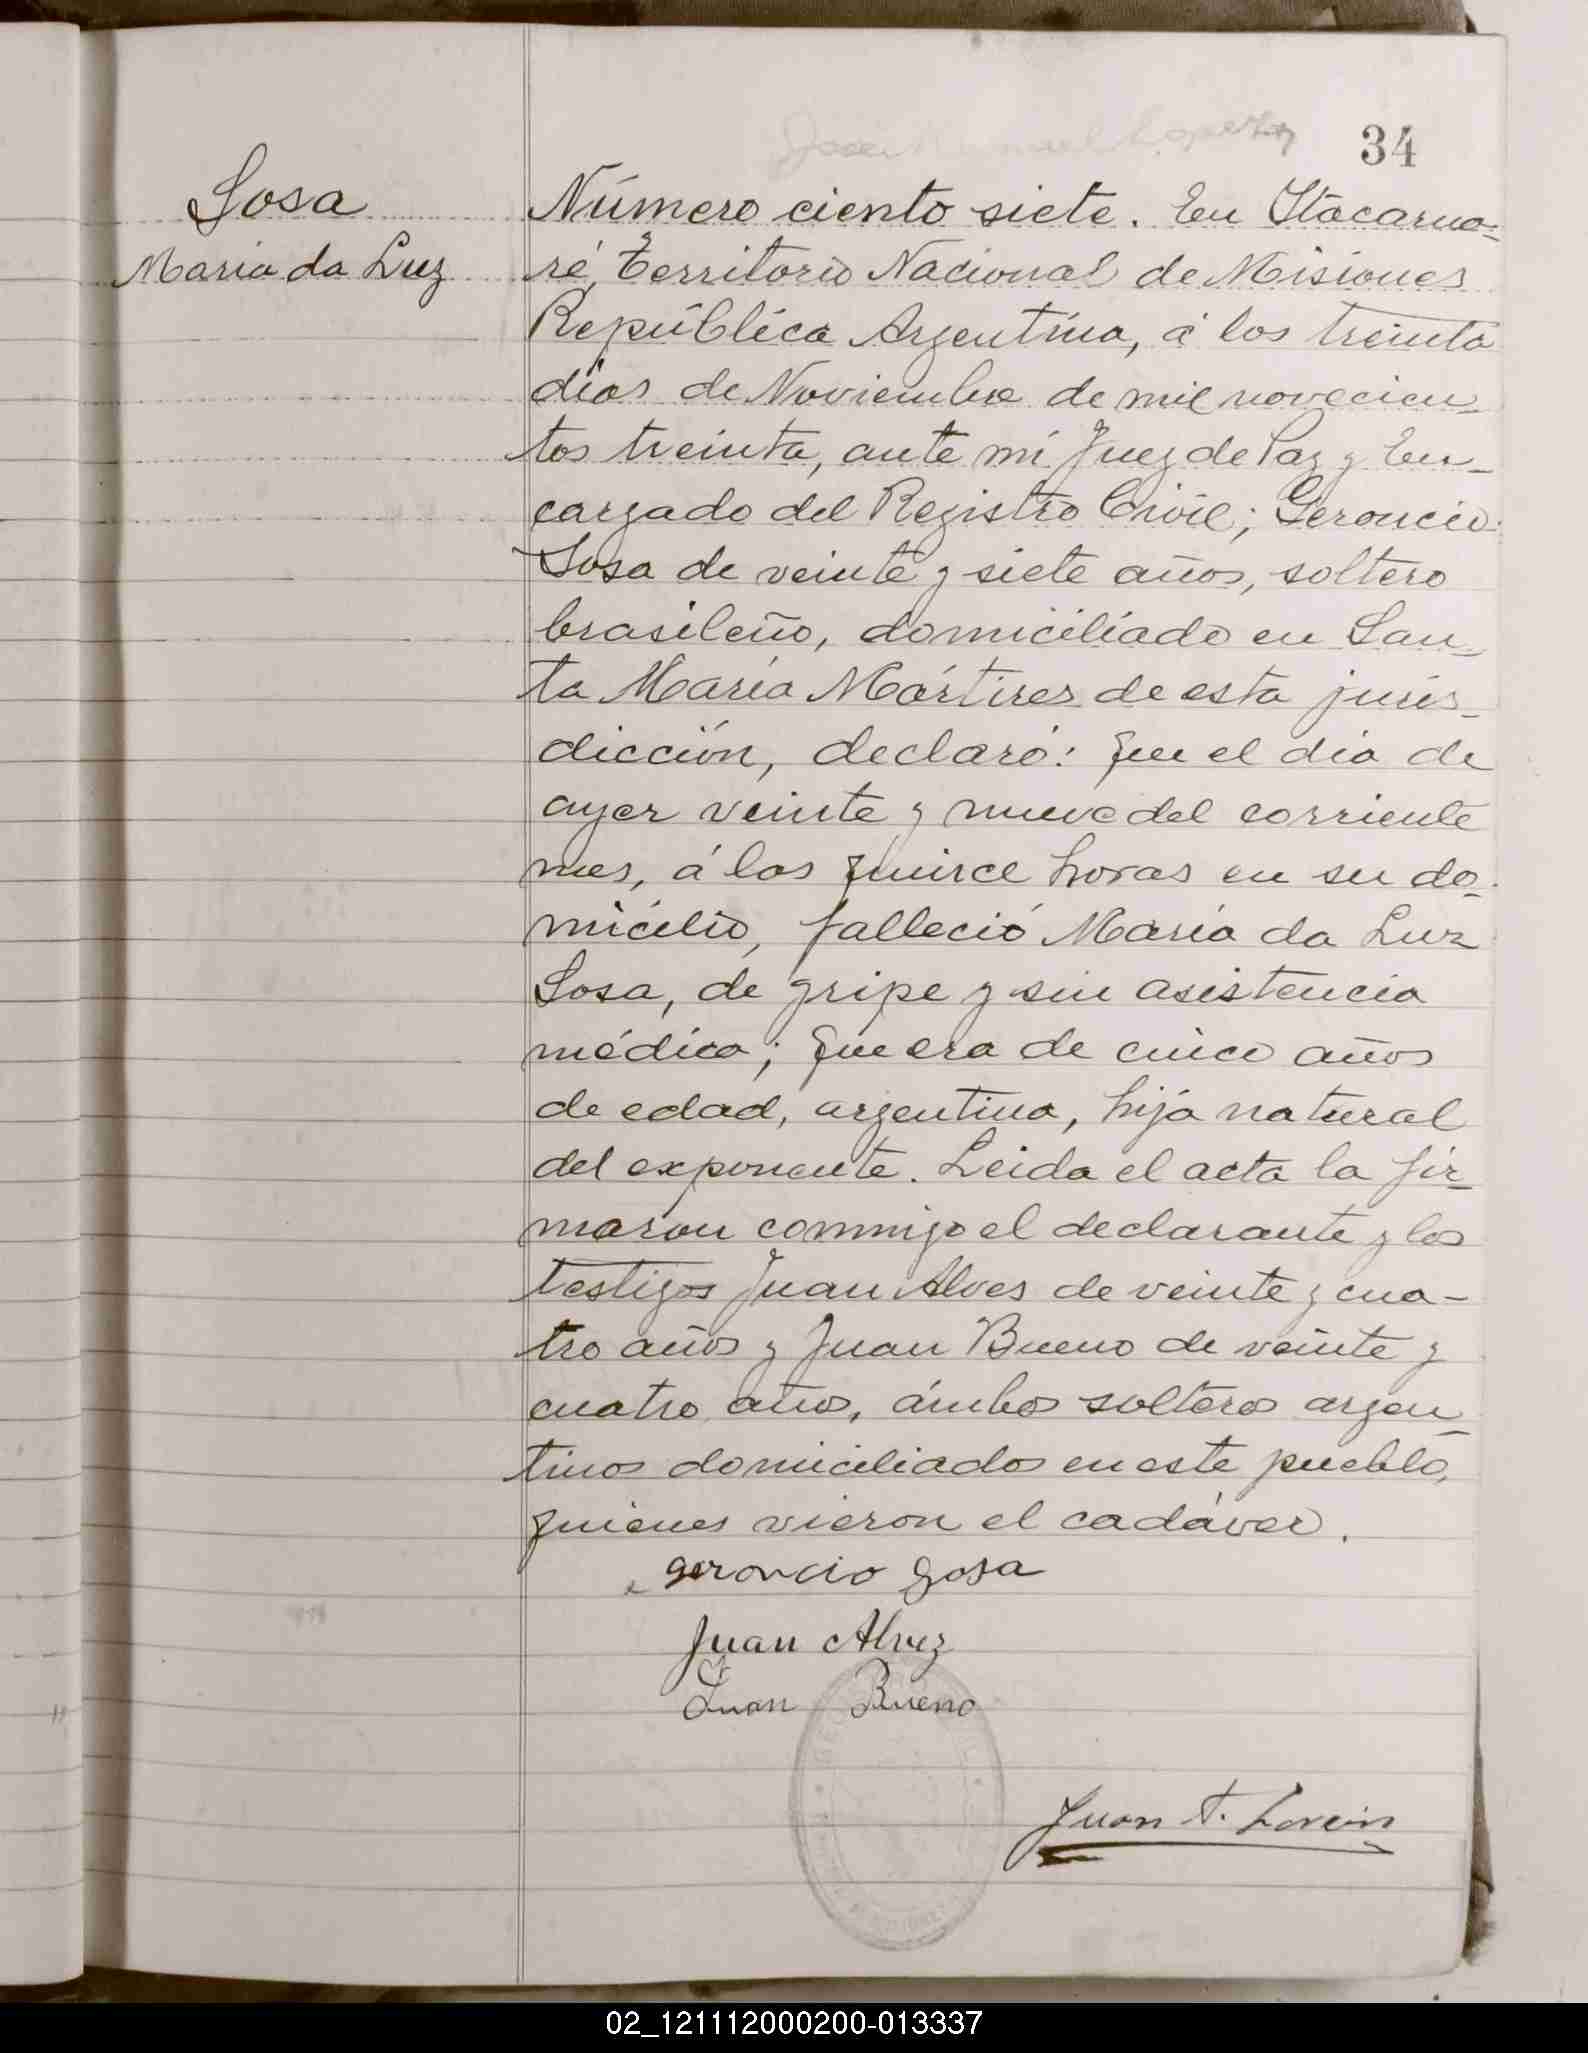 34
Sosa
Maria da Luz
Número ciento siete. En Itacarua-
ré, Territorio Nacional de Misiones
República Argentina, á los treinta
dias de Noviembre de mil novecien-
tos treinta, ante mí Juez de Paz y En-
cargado del Registro Civil; Geroncio
Sosa de veinte y siete años, soltero
brasileño, domiciliado en San-
ta María Mártires de esta juris-
dicción, declaró: Que el día de
ayer veinte y nueve del corriente
mes, á las quince horas en su do-
micilio, falleció María da Luz
Sosa, de gripe y sin asistencia
médica; Que era de cinco años
de edad, argentina, hija natural
del exponente. Leida el acta la fir-
maron conmigo el declarante y los
testigos Juan Alves de veinte y cua-
tro años y Juan Bueno de veinte y
cuatro años, ámbos solteros argen-
tinos domiciliados en este pueblo,
quienes vieron el cadáver.
geroncio Sosa
Juan Alvez
Juan Bueno
Juan
02_121112000200-013337